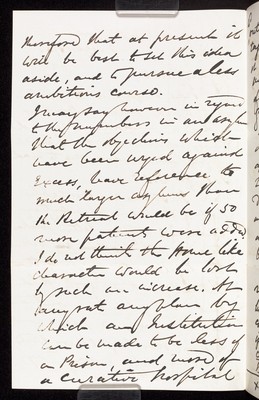 therefore that at present it
will be best to set this idea
aside, and to pursue a less
ambitious course.
I may say however in regard
to the numbers in an asylum
that the objections which
have been urged against
Excess, have reference to
much larger asylums than
the Retreat would be if 50
more patients were added.
I do not think the Home like
character would be lost
by such an increase. At
any rat any plan by
which an Institution
can be made to be less of
a Prison, and more of
a curative hospital